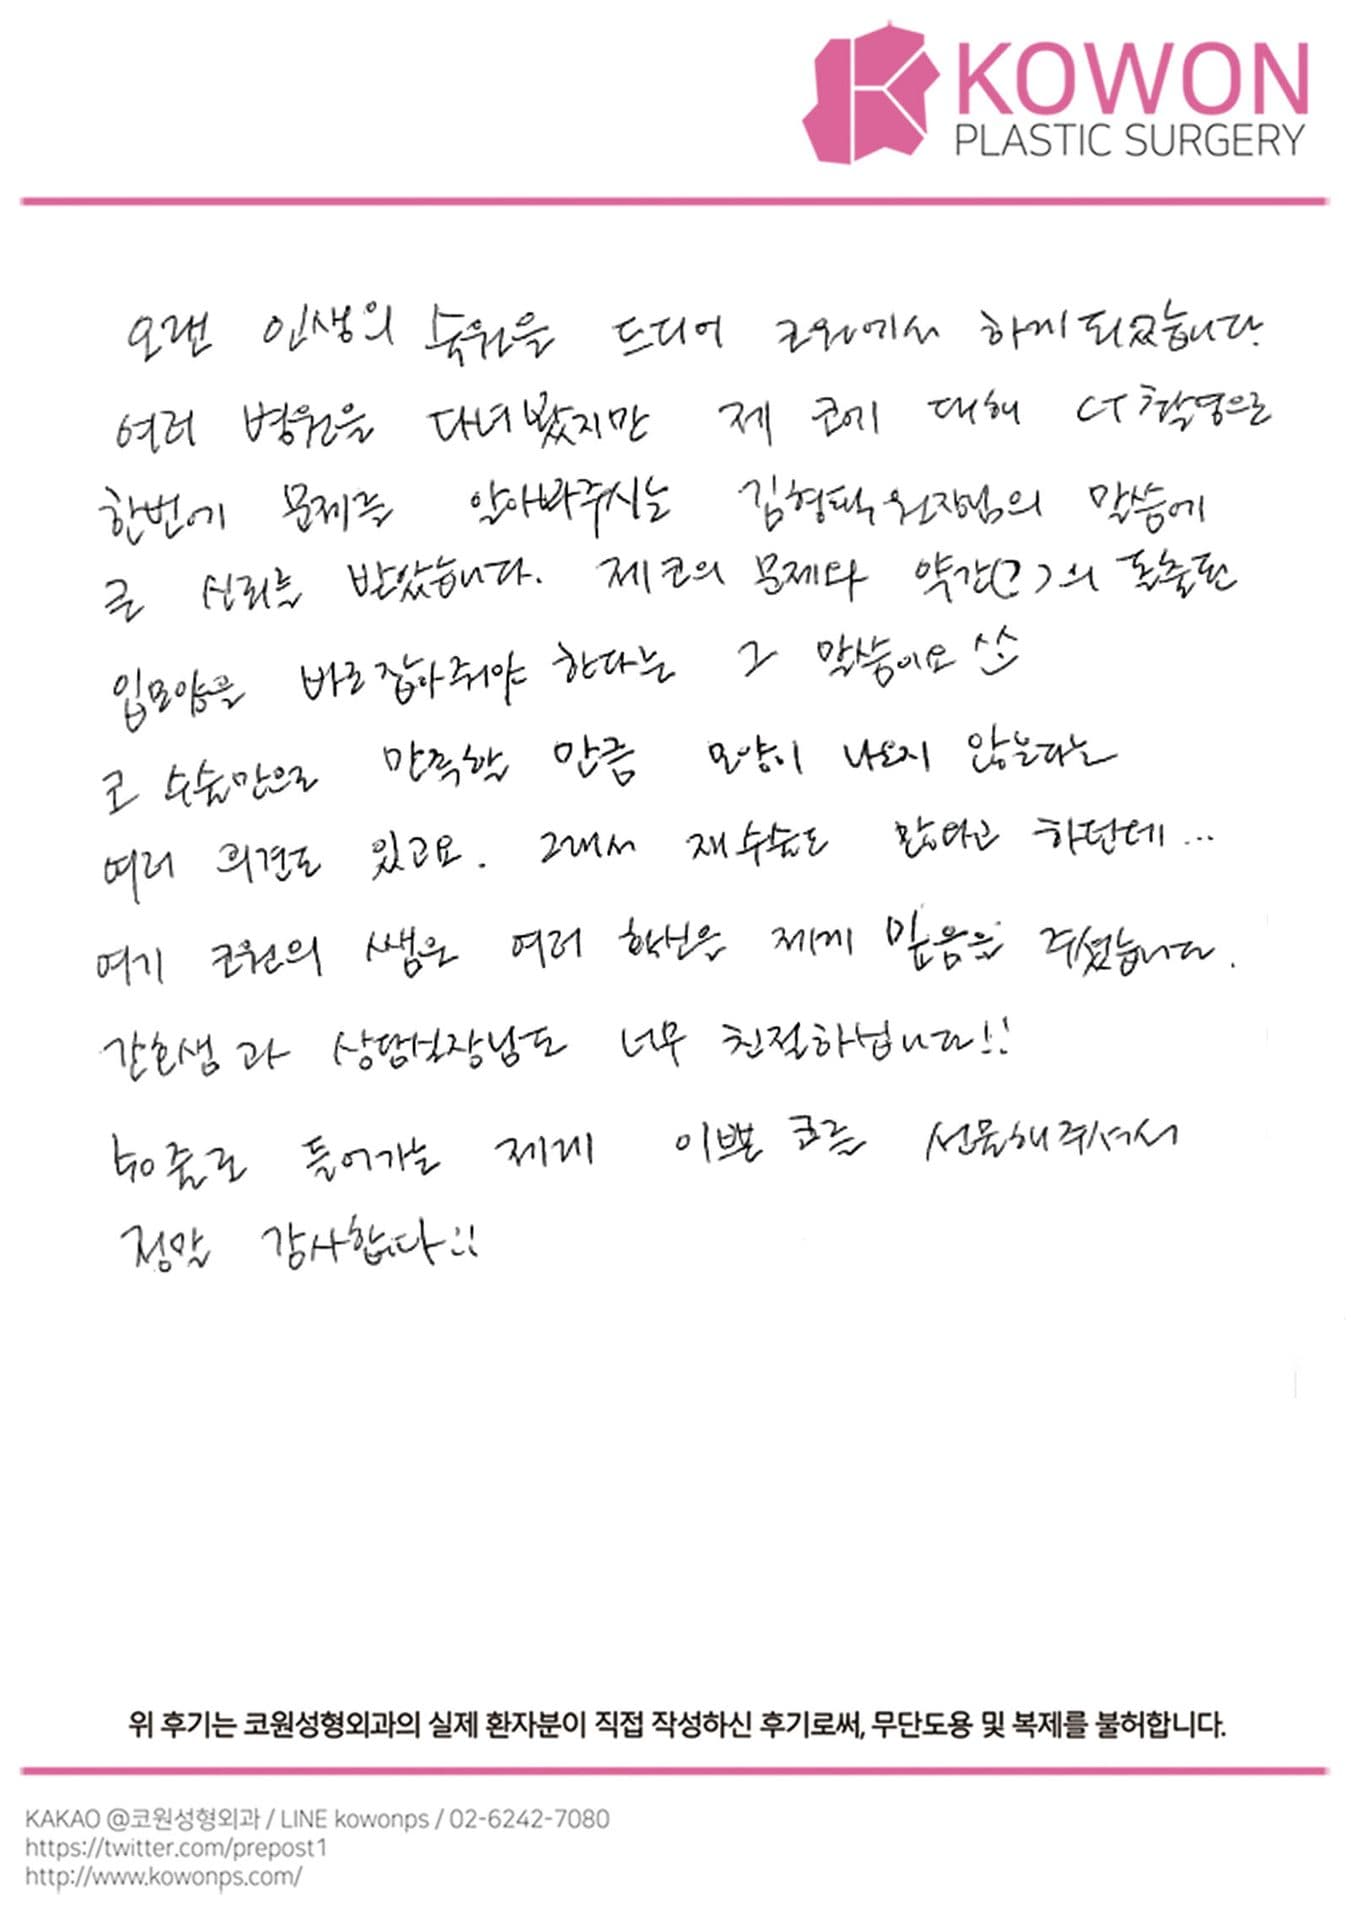 KOWON
PLASTIC SURGERY
오랜 인생의 숙원을 드디어 코원에서 하게되었습니다.
여러 병원을 다녀봤지만 제 코에 대해 CT촬영으로
한번에 문제를 알아봐주시는 김형택원장님의 말씀에
큰 신뢰를 받았습니다. 제코의 문제와 약간(?)의 돌출된
입모양을 바로잡아줘야 한다는 그 말씀이요 ^^
코 수술만으로 만족할 만큼 모양이 나오지 않는다는
여러 의견도 있고요. 그래서 재수술도 많다고 하던데...
여기 코원의 쌤은 여러 확신을 제게 믿음을 주셨습니다.
간호쌤과 상담실장님도 너무 친절하십니다!!
40줄로 들어가는 제게 이쁜 코를 선물해주셔서
정말 감사합니다!!
위 후기는 코원성형외과의 실제 환자분이 직접 작성하신 후기로써, 무단도용 및 복제를 불허합니다.
KAKAO @코원성형외과 / LINE kowonps / 02-6242-7080
https://twitter.com/prepost1
http://www.kowonps.com/